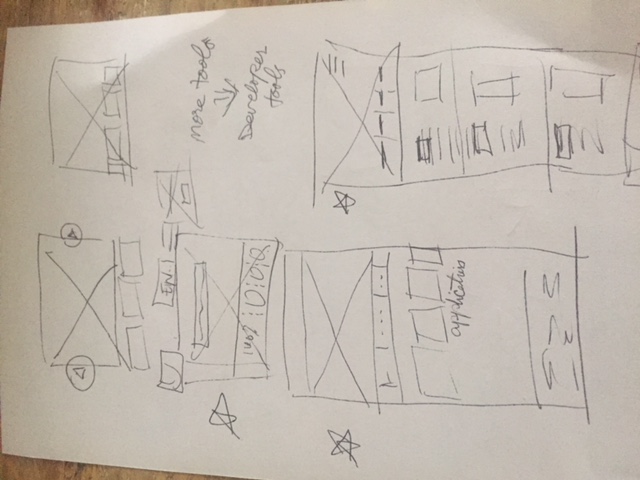 EN
more tools
Developer
tools
applications